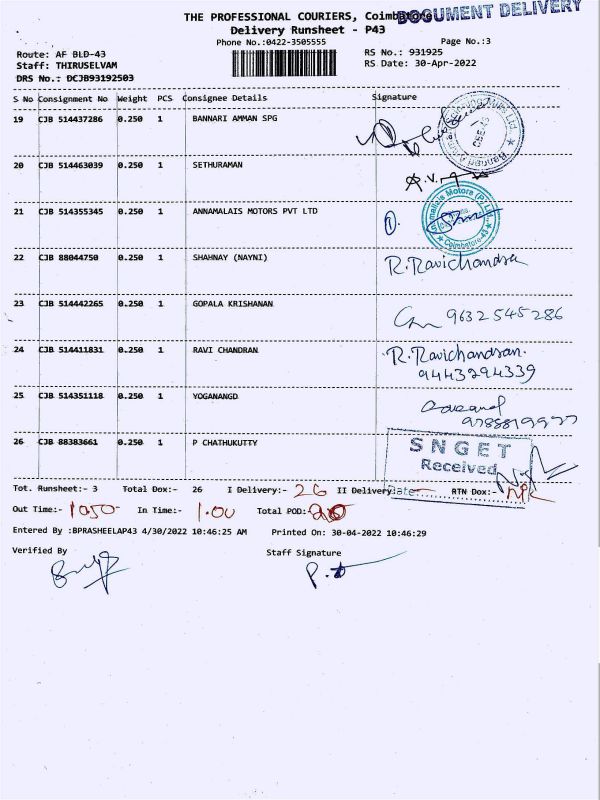 THE PROFESSIONAL COURIERS, Coimbatore
DOCUMENT DELIVERY
Delivery Runsheet - P43
Phone No.:0422-3505555
Page No.:3
Route: AF BLD-43
RS No.: 931925
Staff: THIRUSELVAM
RS Date: 30-Apr-2022
DRS No.: DCJB93192503
S No Consignment No Weight PCS Consignee Details Signature
19 CJB 514437286 0.250 1 BANNARI AMMAN SPG
20 CJB 514463039 0.250 1 SETHURAMAN
21 CJB 514355345 0.250 1 ANNAMALAIS MOTORS PVT LTD
Annamalais Motors (P) Ltd. Coimbatore-43
22 CJB 88044750 0.250 1 SHAHNAY (NAYNI) R. Ravichandra
23 CJB 514442265 0.250 1 GOPALA KRISHANAN 9632545286
24 CJB 514411831 0.250 1 RAVI CHANDRAN R. Ravichandran.
9443294339
25 CJB 514351118 0.250 1 YOGANANGD
26 CJB 88383661 0.250 1 P CHATHUKUTTY
SNGET
Received
Date
Tot. Runsheet:- 3 Total Dox:- 26 I Delivery:- 26 II Delivery RTN Dox:- NIL
Out Time:- 1050 In Time:- 1.00 Total POD:-
Entered By :BPRASHEELAP43 4/30/2022 10:46:25 AM Printed On: 30-04-2022 10:46:29
Verified By Staff Signature